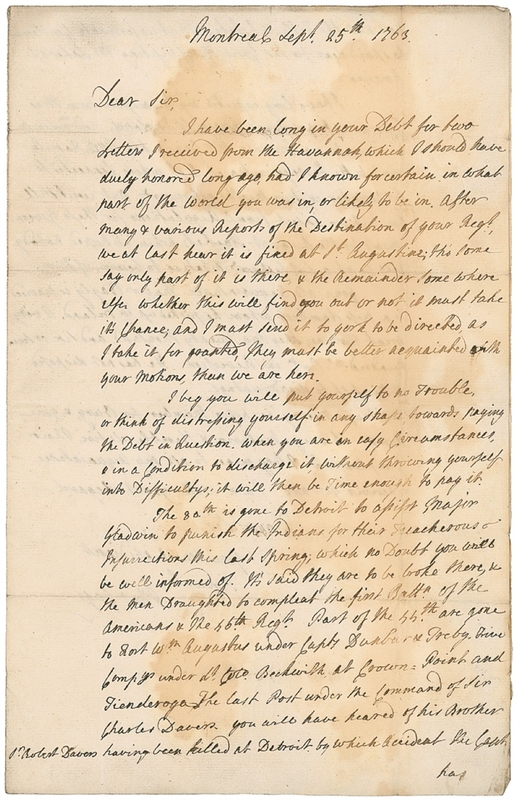 Montreal Sept. 25th 1763.
Dear Sir,
I have been long in your Debt for two
Letters I received from the Havannah, which I should have
duely honored long ago, had I known for certain in what
part of the World you was in, or likely to be in, after
many & various Reports of the Destination of your Regt,
we at last hear it is fixed at St. Augustine; tho' some
say only part of it is there, & the Remainder some where
else. whether this will find you out or not it must take
its Chance, and I must send it to york to be directed as
I take it for granted, they must be better acquainted with
your Motions, than we are here.
I beg you will put yourself to no Trouble,
or think of distressing yourself in any shape towards paying
the Debt in Question. when you are in easy Circumstances,
in a Condition to discharge it without throwing yourself
into Difficultys; it will then be Time enough to pay it.
The 80th is gone to Detroit to assist Major
Gladwin to punish the Indians for their treacherous
Insurrections this last Spring, which no Doubt you will
be well informed of. It's said they are to be broke there, &
the Men Draughted to compleat the first Battn of the
Americans & the 46th Regt. Part of the 44th are gone
to Fort Wm Augustus under Capts Dunbar & Treby. Five
Compys under Lt Colo Beckwith at Crown=Point and
Tienderoga. The last Post under the Command of Sir
Charles Davers. you will have heared of his Brother
Sr Robert Davers having been killed at Detroit. by which Accident the Captn
has